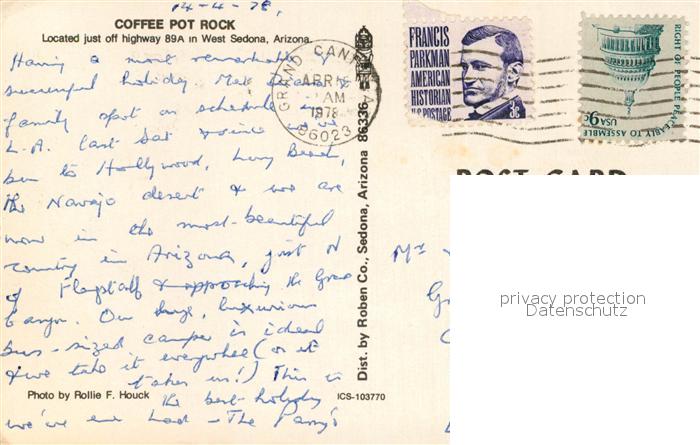 14-4-78,
COFFEE POT ROCK
Located just off highway 89A in West Sedona, Arizona.
Having a most remarkably
successful holiday. Met
family spot on schedule in
L.A. last Sat & since we've
been to Hollywood, Long Beach,
the Navajo desert & we are
now in the most-beautiful
country in Arizona, just N
of Flagstaff & approaching the Grand
Canyon. Our huge, luxurious
bus-sized camper is ideal
& we take it everywhere (or it
takes us!) This is
Photo by Rollie F. Houck
the best-holiday
we've ever had - The
ICS-103770
Dist. by Roben Co., Sedona, Arizona 86336
GRAND CAN
APR
AM
1978
86023
FRANCIS
PARKMAN
AMERICAN
HISTORIAN
U.S. POSTAGE
3¢
RIGHT OF PEOPLE PEACEABLY TO ASSEMBLE
USA
9c
POST CARD
Mrs
G
privacy protection
Datenschutz